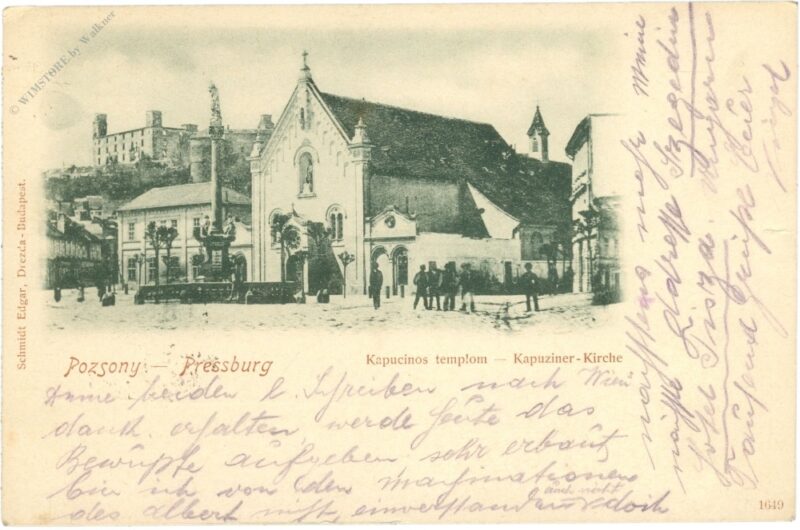 © WIMSTORE by Walkner
Schmidt Edgar, Drezda-Budapest.
Pozsony — Pressburg
Kapucinos templom — Kapuziner-Kirche
beiden l. Schreiben nach Wien
dank. erhalten, werde heute das
Bewußte aufgeben sehr erbaut
bin ich von den
auch nicht
des Albert nicht einverstanden doch
nächstens mehr Meine
nächste Adresse Szegedin
Hotel Tisza. Ungarn
Tausend Grüße Euer
1649